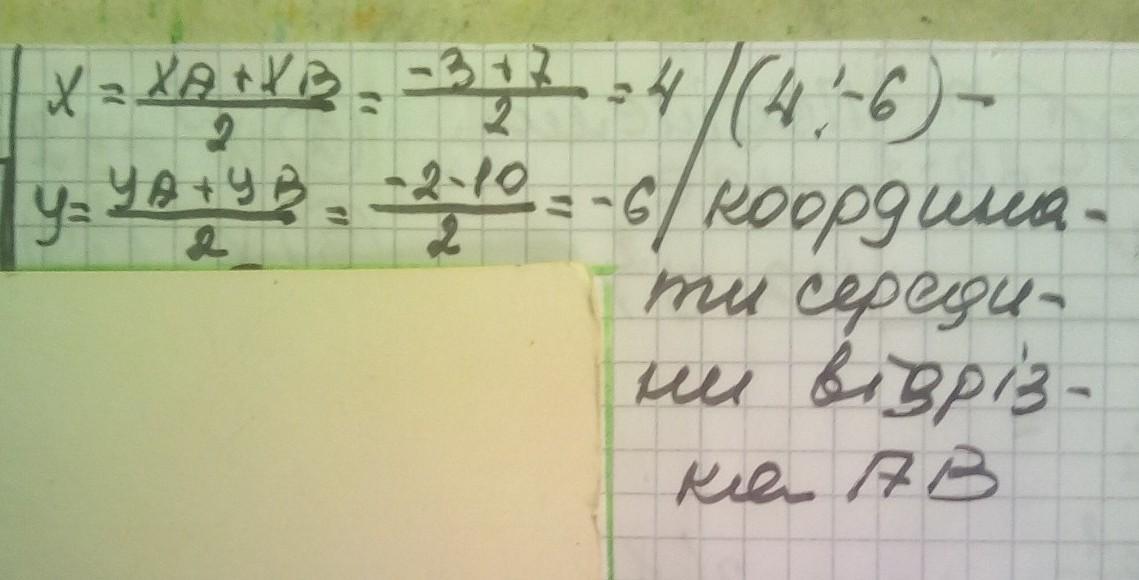 x = (xA + xB)/2 = (-3 + 7)/2 = 4 / (4; -6) -
y = (yA + yB)/2 = (-2 - 10)/2 = -6 / координа-
ти середи-
ни відріз-
ка AB